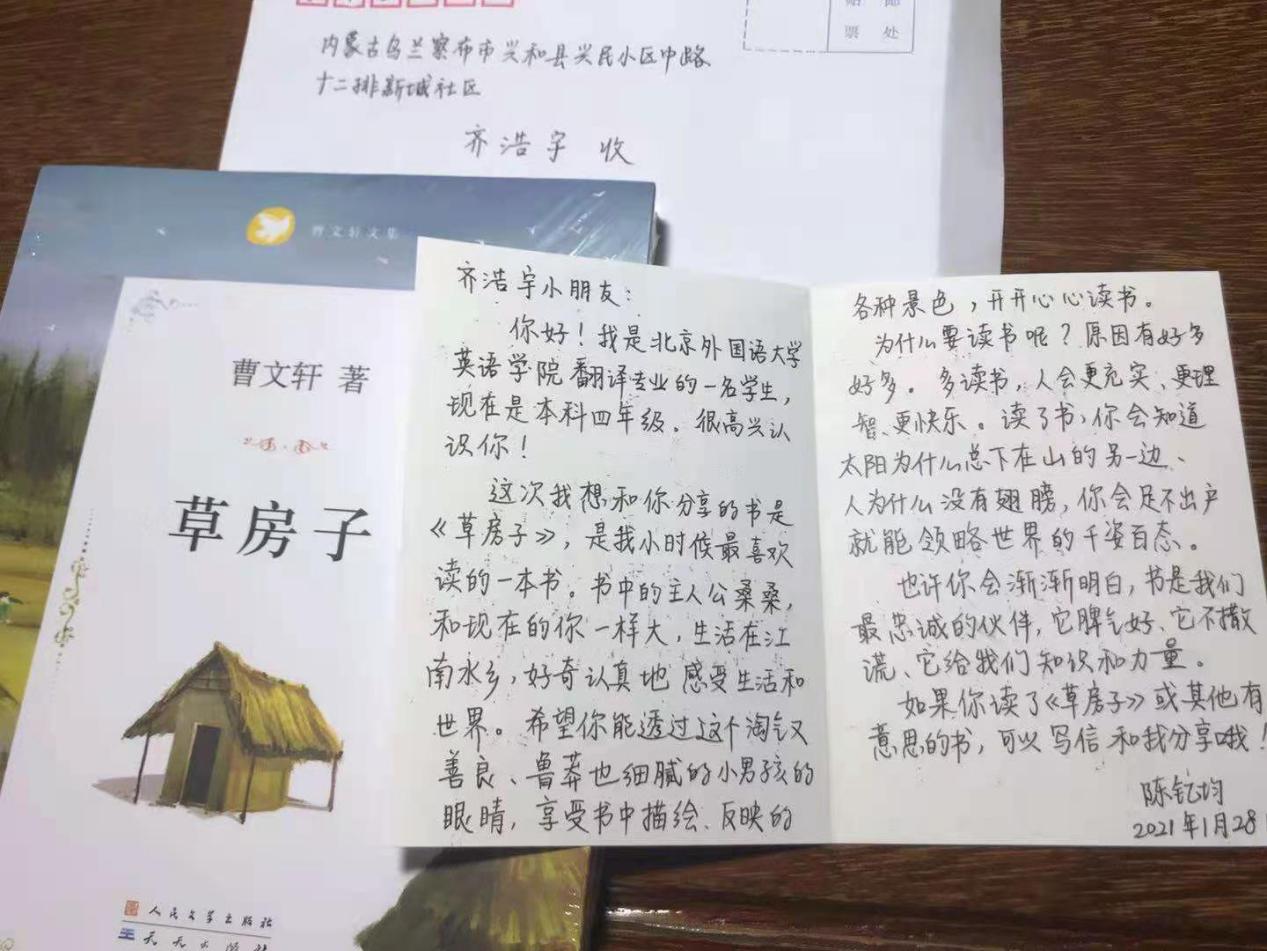 贴 邮
票 处
内蒙古乌兰察布市兴和县兴民小区中路
十二排新城社区
齐浩宇 收
曹文轩文集
曹文轩 著
草房子
人民文学出版社
天天出版社
齐浩宇小朋友：
你好！我是北京外国语大学
英语学院翻译专业的一名学生，
现在是本科四年级。很高兴认
识你！
这次我想和你分享的书是
《草房子》，是我小时候最喜欢
读的一本书。书中的主人公桑桑，
和现在的你一样大，生活在江
南水乡，好奇认真地感受生活和
世界。希望你能透过这个淘气又
善良、鲁莽也细腻的小男孩的
眼睛，享受书中描绘、反映的
各种景色，开开心心读书。
为什么要读书呢？原因有好多
好多。多读书，人会更充实、更理
智、更快乐。读了书，你会知道
太阳为什么总下在山的另一边、
人为什么没有翅膀，你会足不出户
就能领略世界的千姿百态。
也许你会渐渐明白，书是我们
最忠诚的伙伴，它脾气好、它不撒
谎、它给我们知识和力量。
如果你读了《草房子》或其他有
意思的书，可以写信和我分享哦！
陈钇均
2021年1月28